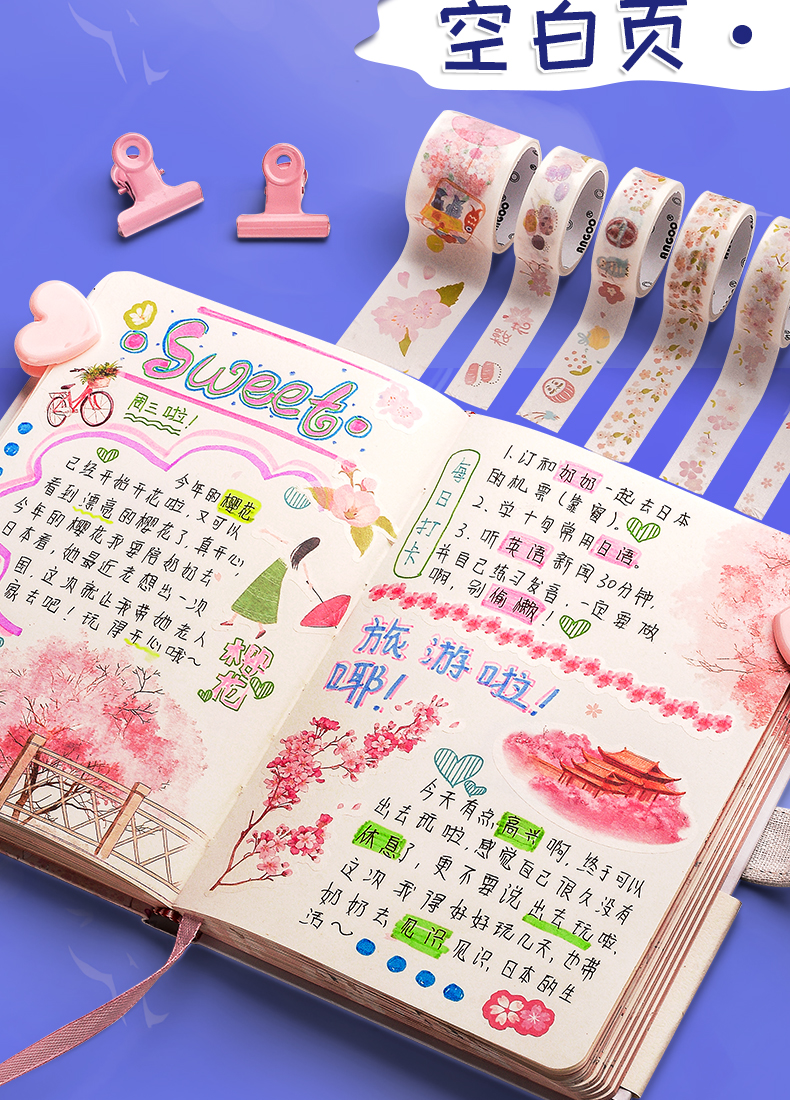 空白页·
ANGOO®
ANGOO®
ANGOO®
Sweet
周三啦！
今年的樱花
已经开始开花啦，又可以
看到漂亮的樱花了，真开心，
今年的樱花我要陪奶奶去
日本看，她最近老想出一次
国，这次就让我带她老人
家去吧！玩得开心哦～
樱花
每日打卡
1.订和奶奶一起去日本
的机票（靠窗）。
2.学十句常用日语。
3.听英语新闻30分钟，
并自己练习发音，一定要做
啊，别偷懒！
旅游啦！
耶！
今天有点高兴啊，终于可以
出去玩啦，感觉自己很久没有
休息了，更不要说出去玩啦，
这次我得好好玩几天，也带
奶奶去见识见识日本的生
活～
樱花